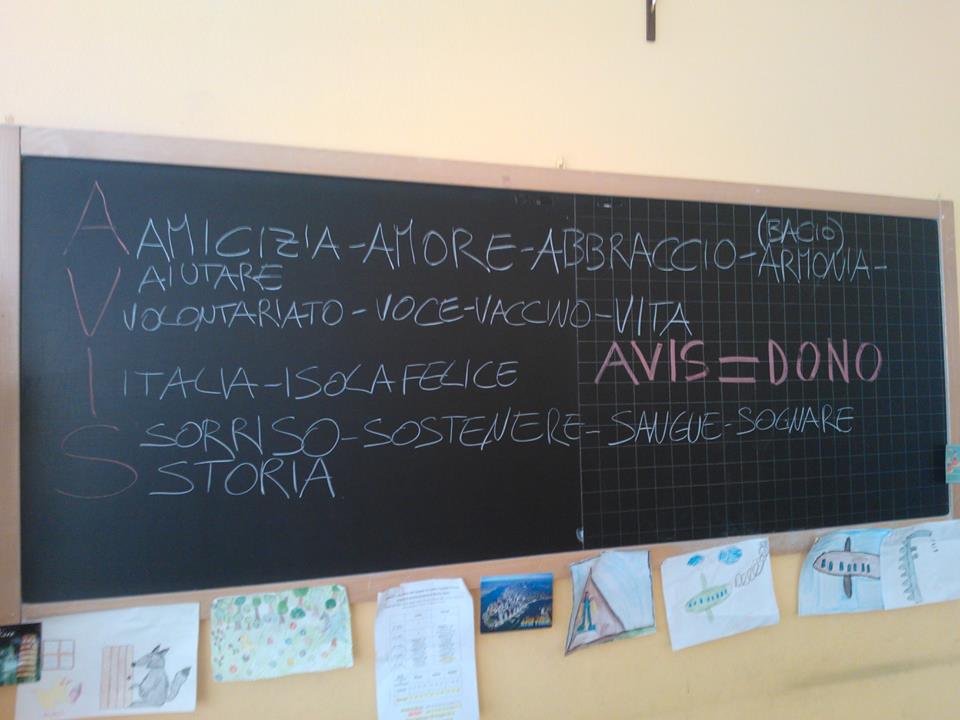 A
AMICIZIA-AMORE-ABBRACCIO-(BACIO)
AIUTARE ARMONIA-
V
VOLONTARIATO-VOCE-VACCINO-VITA
AVIS=DONO
I
ITALIA-ISOLA FELICE
S
SORRISO-SOSTENERE-SANGUE-SOGNARE
STORIA